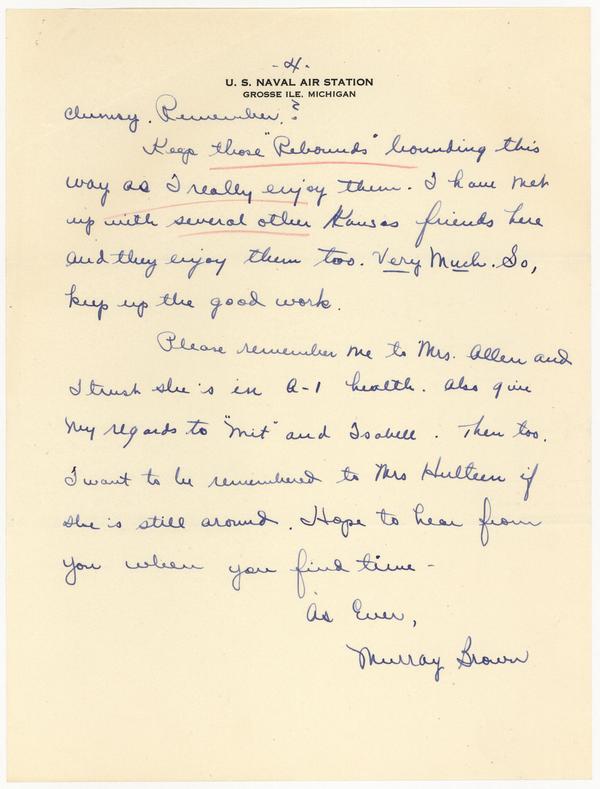 - 4 -
U. S. NAVAL AIR STATION
GROSSE ILE, MICHIGAN
clumsy. Remember?
Keep those "Rebounds" bounding this
way as I really enjoy them. I have met
up with several other Kansas friends here
and they enjoy them too. Very Much. So,
keep up the good work.
Please remember me to Mrs. Allen and
I trust she is in A-1 health. Also give
my regards to "Mit" and Isabell. Then too,
I want to be remembered to Mrs Hulteen if
she is still around. Hope to hear from
you when you find time -
As Ever,
Murray Brown